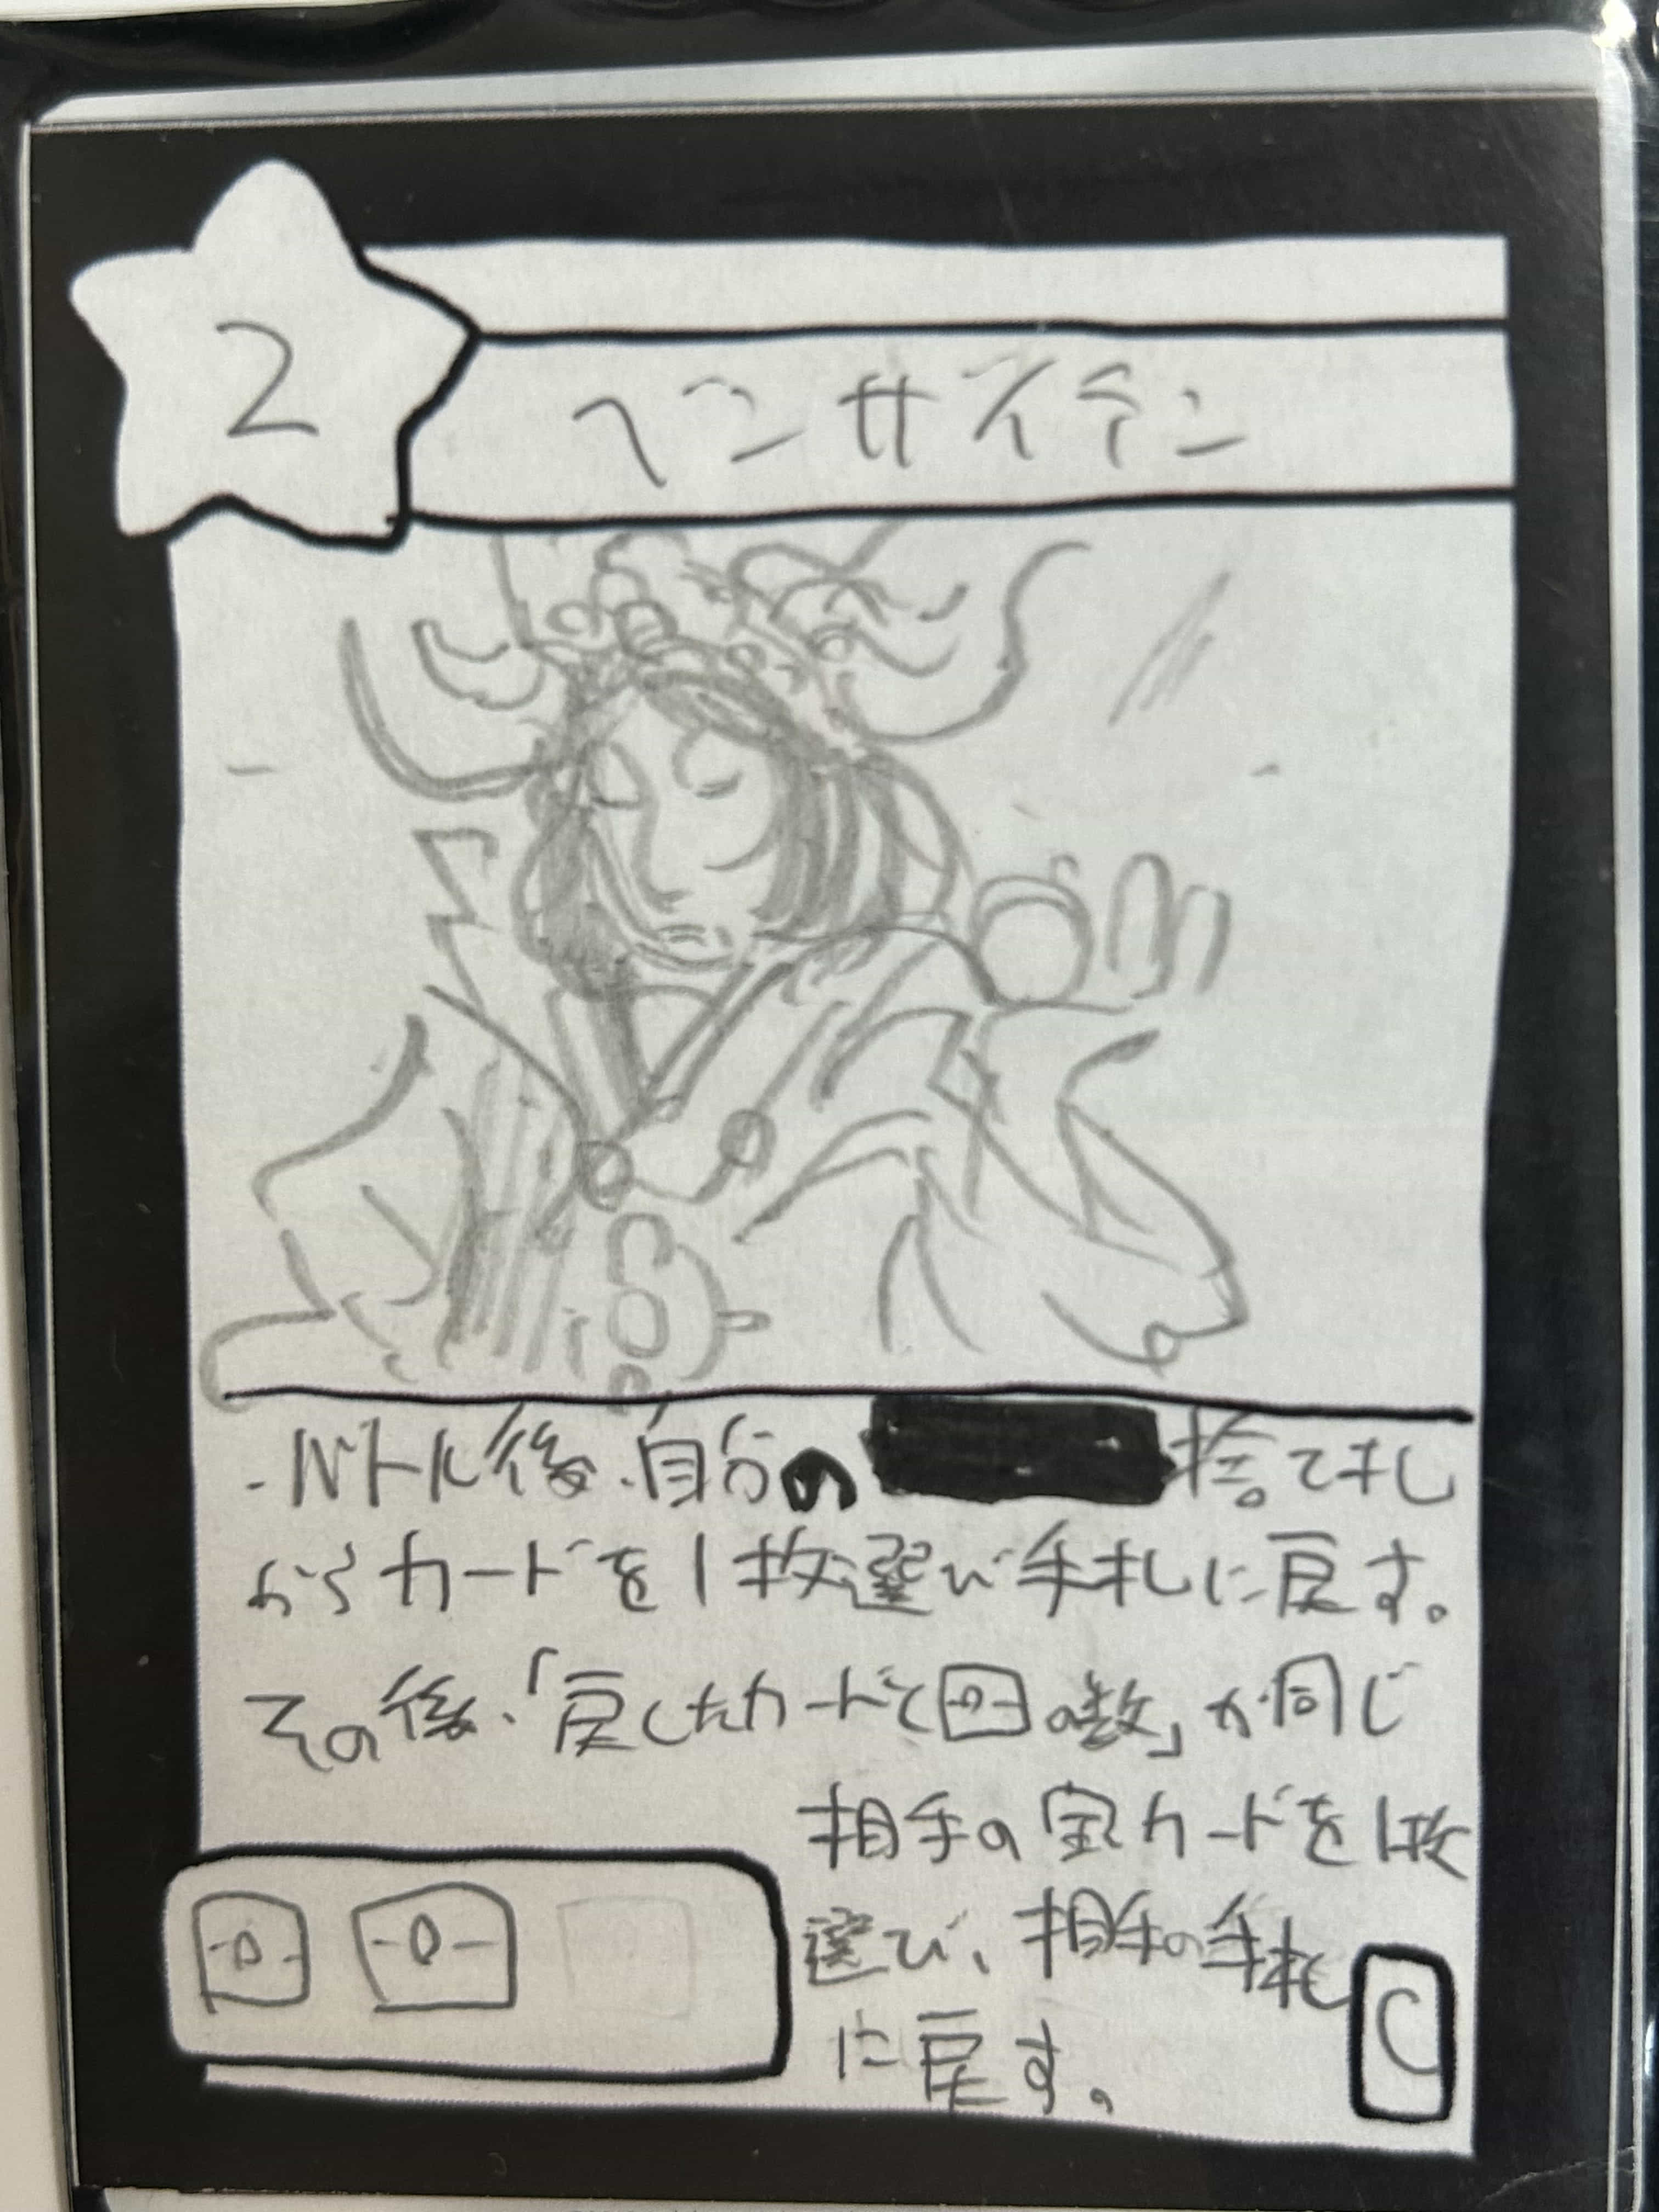 2
ベンザイテン
・バトル後、自分の捨て札
からカードを1枚選び手札に戻す。
その後、「戻したカードと の数」が同じ
相手の宝カードを1枚
選び、相手の手札
に戻す。
C